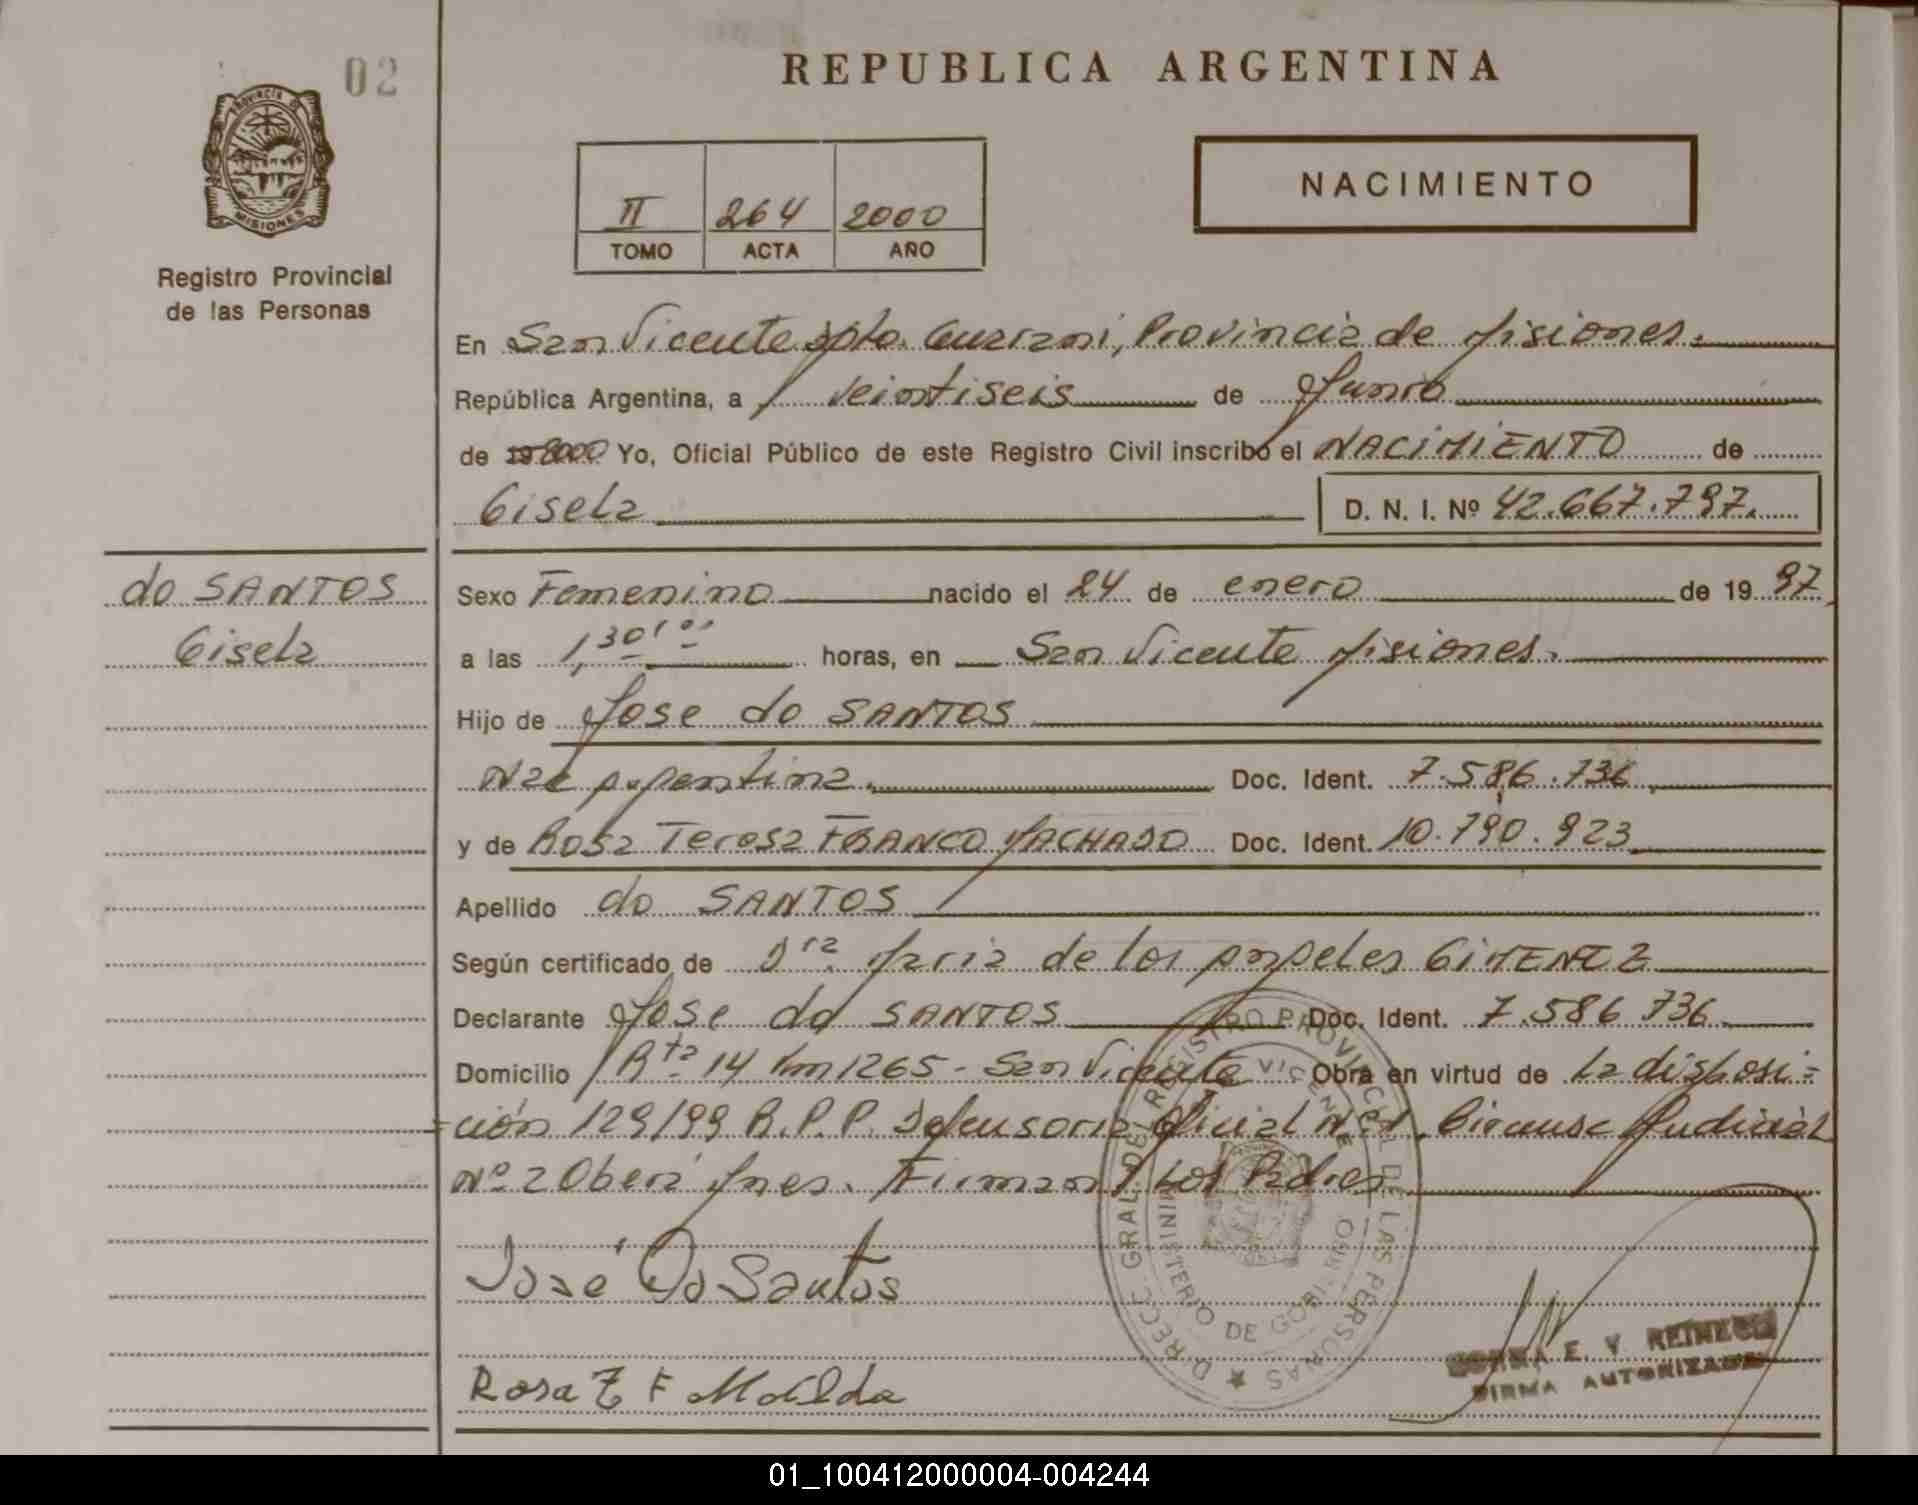 02
PROVINCIA DE
MISIONES
Registro Provincial
de las Personas
REPUBLICA ARGENTINA
II 264 2000
TOMO ACTA AÑO
NACIMIENTO
En San Vicente Dpto. Guarani, Provincia de Misiones.
República Argentina, a veintiseis de Junio
de 19 2000 Yo, Oficial Público de este Registro Civil inscribo el NACIMIENTO de
Gisela D. N. I. Nº 42.667.797.
do SANTOS
Gisela
Sexo Femenino nacido el 24 de enero de 19 97
a las 1,30 horas, en San Vicente Misiones.
Hijo de Jose do SANTOS
Nac Argentina. Doc. Ident. 7.586.736
y de Rosa Teresa FRANCO MACHADO Doc. Ident. 10.790.923
Apellido do SANTOS
Según certificado de Dra. Maria de los Angeles GIMENEZ
Declarante Jose do SANTOS Doc. Ident. 7.586 736
Domicilio Rta 14 Km 1265 - San Vicente Obra en virtud de la disposi=
=ción 129/99 R.P.P. Defensoria Oficial Nº 1. Circunsc Judicial
Nº 2 Oberá Mnes. Firman Los Padres
José Do Santos
Rosa T F
DIRECC. GRAL. DEL REGISTRO PROVINCIAL DE LAS PERSONAS
MINISTERIO DE GOBIERNO
E. V.
FIRMA AUTORIZADA
01_100412000004-004244